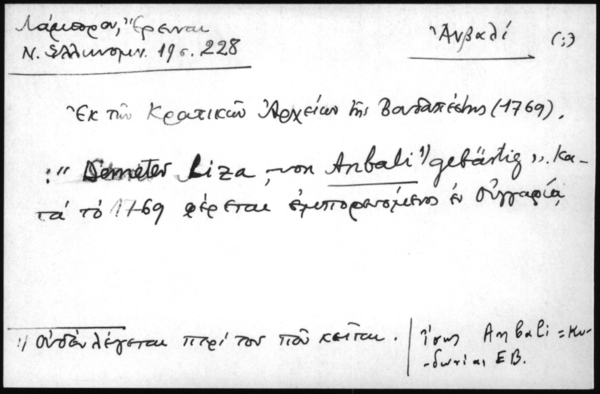 Λάμπρου, Ἔρευναι Ἀνβαλί (;)
Ν. Ἑλληνομν. 19 σ. 228
Ἐκ τῶν Κρατικῶν Ἀρχείων τῆς Βουδαπέστης (1769).
:" Demeter Liza, von Anbali 1) gebärtig". Κα-
τὰ τὸ 1769 φέρεται ἐμπορευόμενος ἐν Οὐγγαρίᾳ
1) Οὐδὲν λέγεται περὶ τοῦ ποῦ κεῖται. Ἴσως Anbali = Κυ-
-δωνίαι Ε.Β.